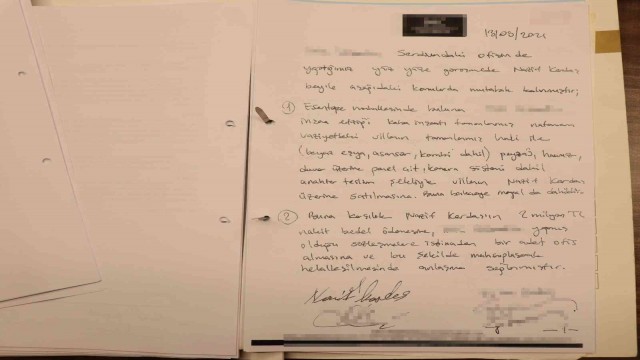 18/05/2021
Serdivandaki ofisinde
yaptığımız yüz yüze görüşmede Nazif Kardaş
beyle aşağıdaki konularda mutabık kalınmıştır;
1 Esentepe mahallesinde bulunan
inşaa ettiği kaba inşaatı tamamlanmış
vaziyetteki villanın tamamlanmış hali ile
(beyaz eşya, asansör, kombi dahil) peyzaj, havuz,
duvar üzerine panel çit, kamera sistemi dahil
anahtar teslim şekliyle villanın Nazif Kardaş
üzerine satılmasına. dahildir.
2 Buna karşılık Nazif Kardaşın 2 milyon TL
nakit bedel ödemesine, yapmış
olduğu sözleşmelere istinaden bir adet ofis
almasına ve bu şekilde mahsuplaşmada
helalleşilmesinde anlaşma sağlanmıştır.